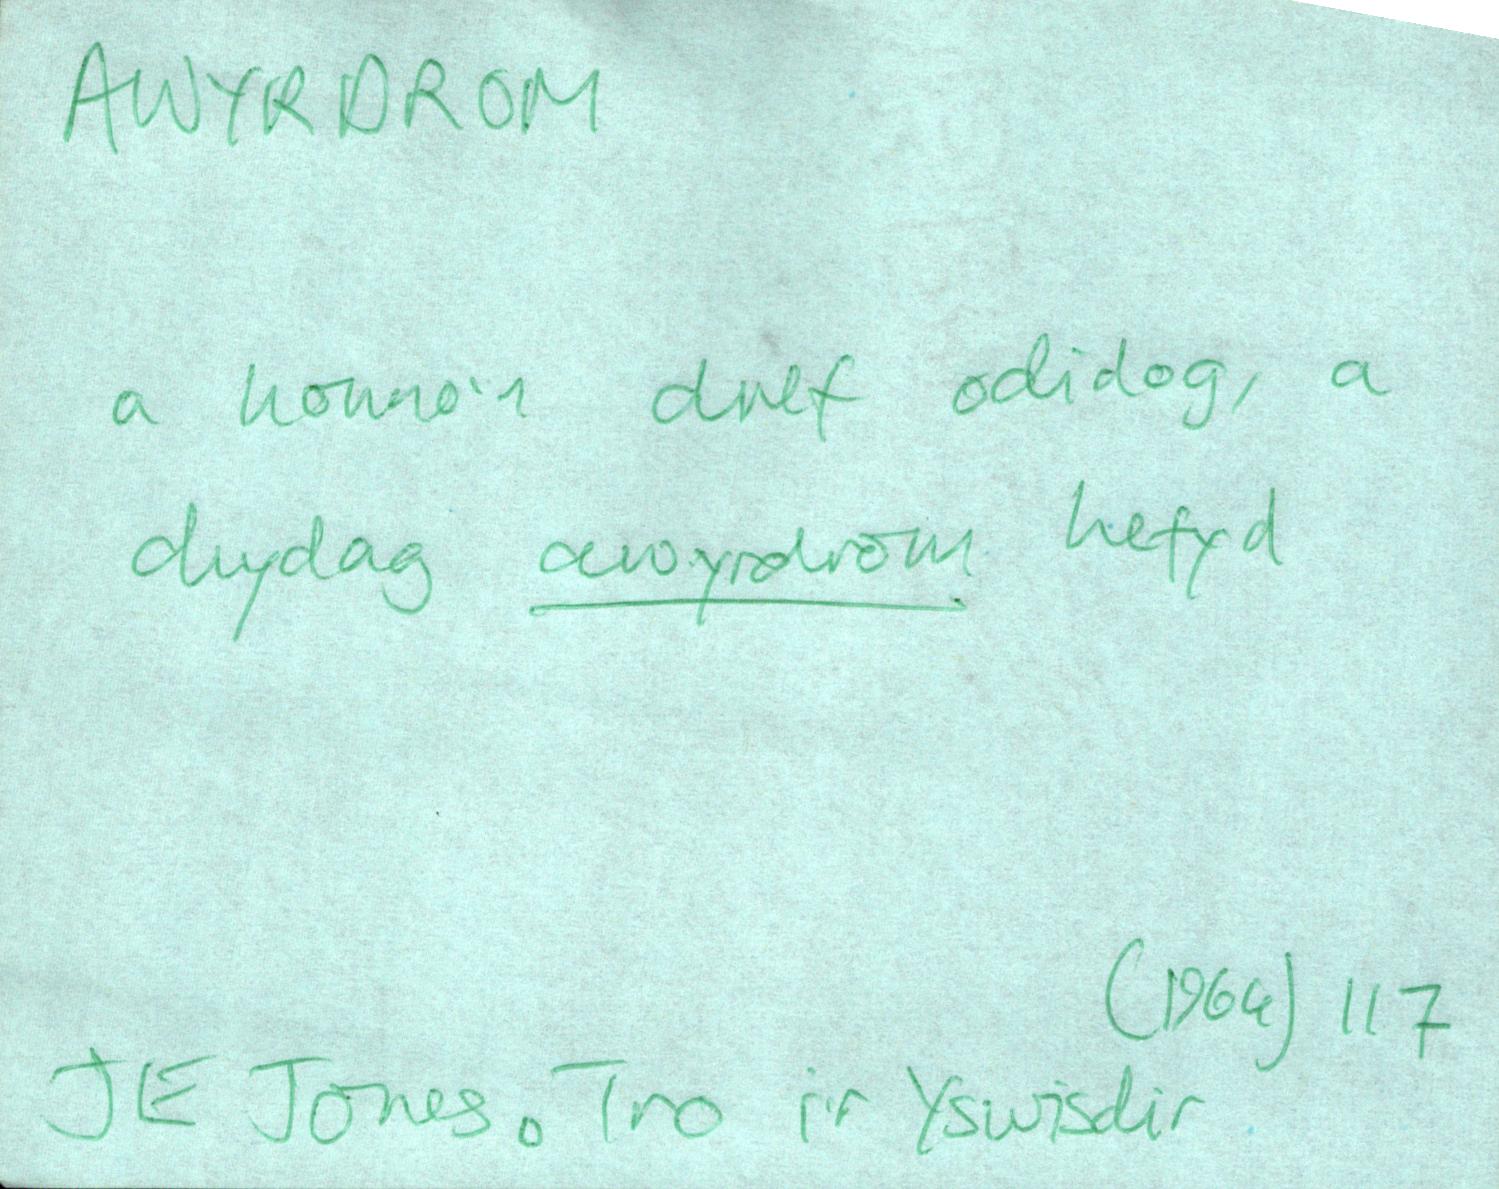 AWYRDROM
a honno'n dref odidog, a
chydag awyrdrom hefyd
(1964) 117
JE Jones. Tro i'r Yswisdir